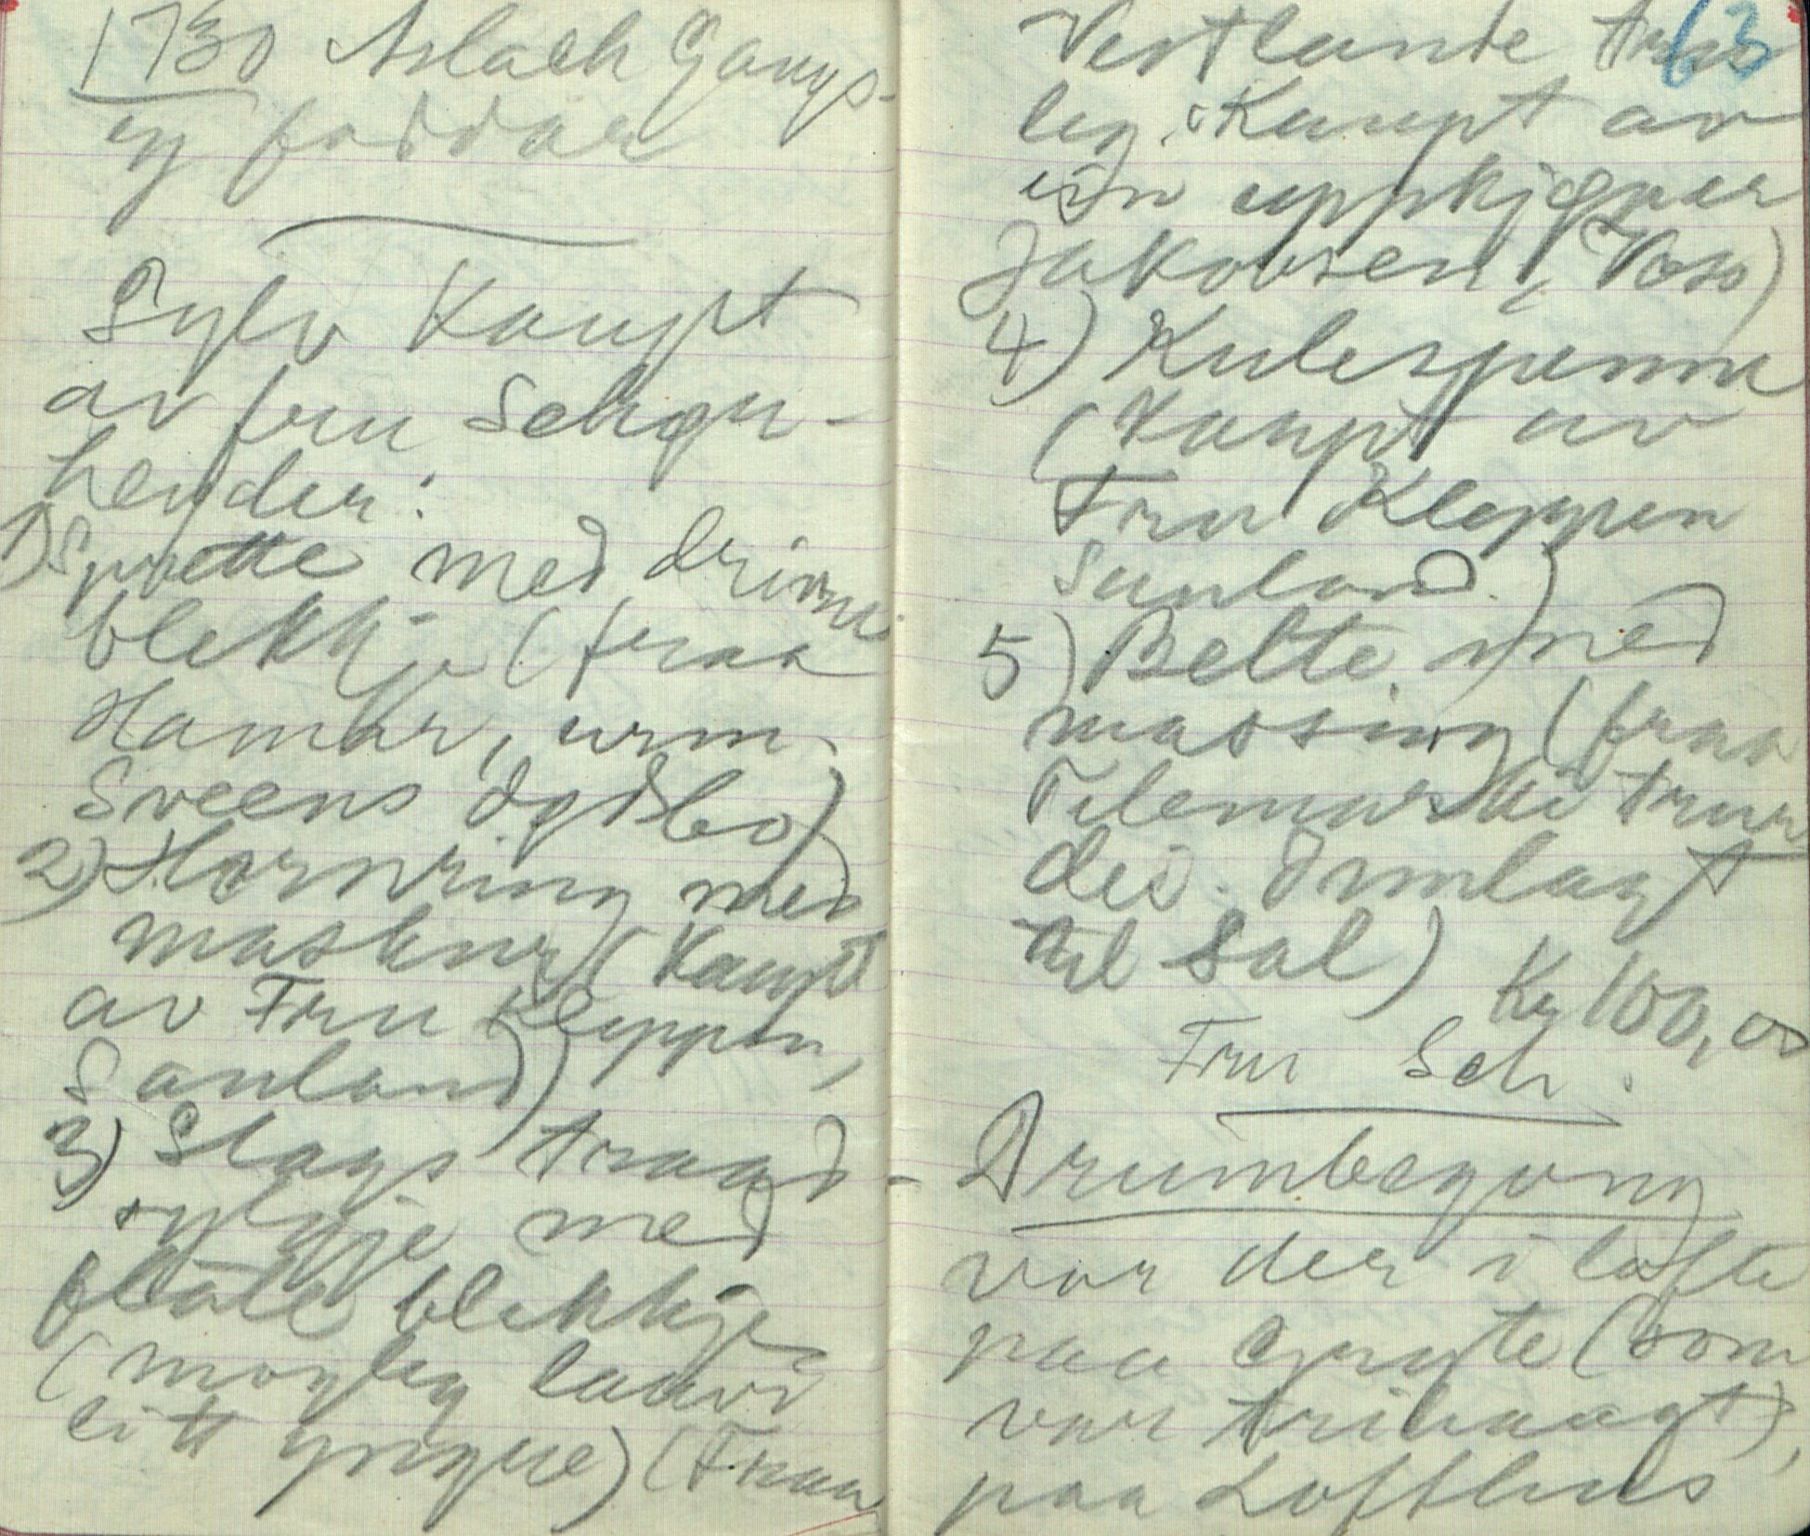 1730 Aslach Gaugs-
ey foddar
Sylv Kaupt
av fru Schøn-
heyder:
1) Sprette med drivne
blekkje (fraa
Hamar, urm.
Sveens dødsbo)
2) Hornring med
maskur (Kaupt
av Fru Kleppen,
Sauland)
3) Slags traad-
sylgje med
flate blekkje
(mogleg
eitt yngre) (Fraa
63
Vestlande tru-
leg. Kaupt av
ein uppkjøper
Jakobsen, Voss)
4) Kulespenne
(Kaupt av
Fru Kleppen
Sauland.)
5) Belte med
massing (fraa
Telemarki trur
dei. Innlagt
til Sal)
Kr 100,00
Fru Sch.
Drumbegong
var der i lofte
paa gruvte (som
var trihaagt),
paa Lofthus